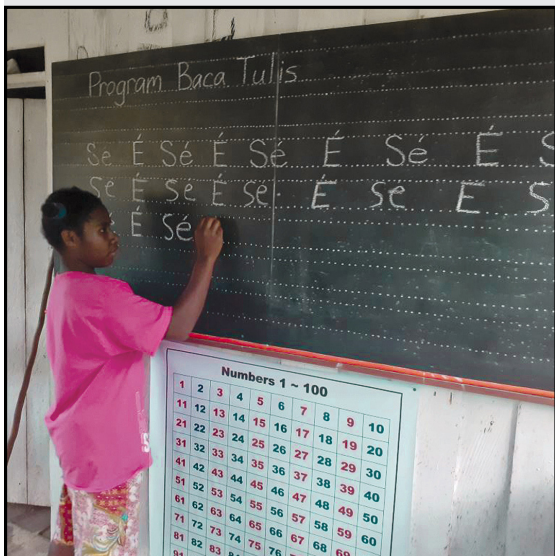 Program Baca Tulis
Sé É Sé É Sé É Sé É S
Sé É Se É Se É Se E S
É Sé
Numbers 1 ~ 100
1 2 3 4 5 6 7 8 9 10
11 12 13 14 15 16 17 18 19 20
21 22 23 24 25 26 27 28 29 30
31 32 33 34 35 36 37 38 39 40
41 42 43 44 45 46 47 48 49 50
51 52 53 54 55 56 57 58 59 60
61 62 63 64 65 66 67 68 69
71 72 73 74 75 76
81 82 83
91